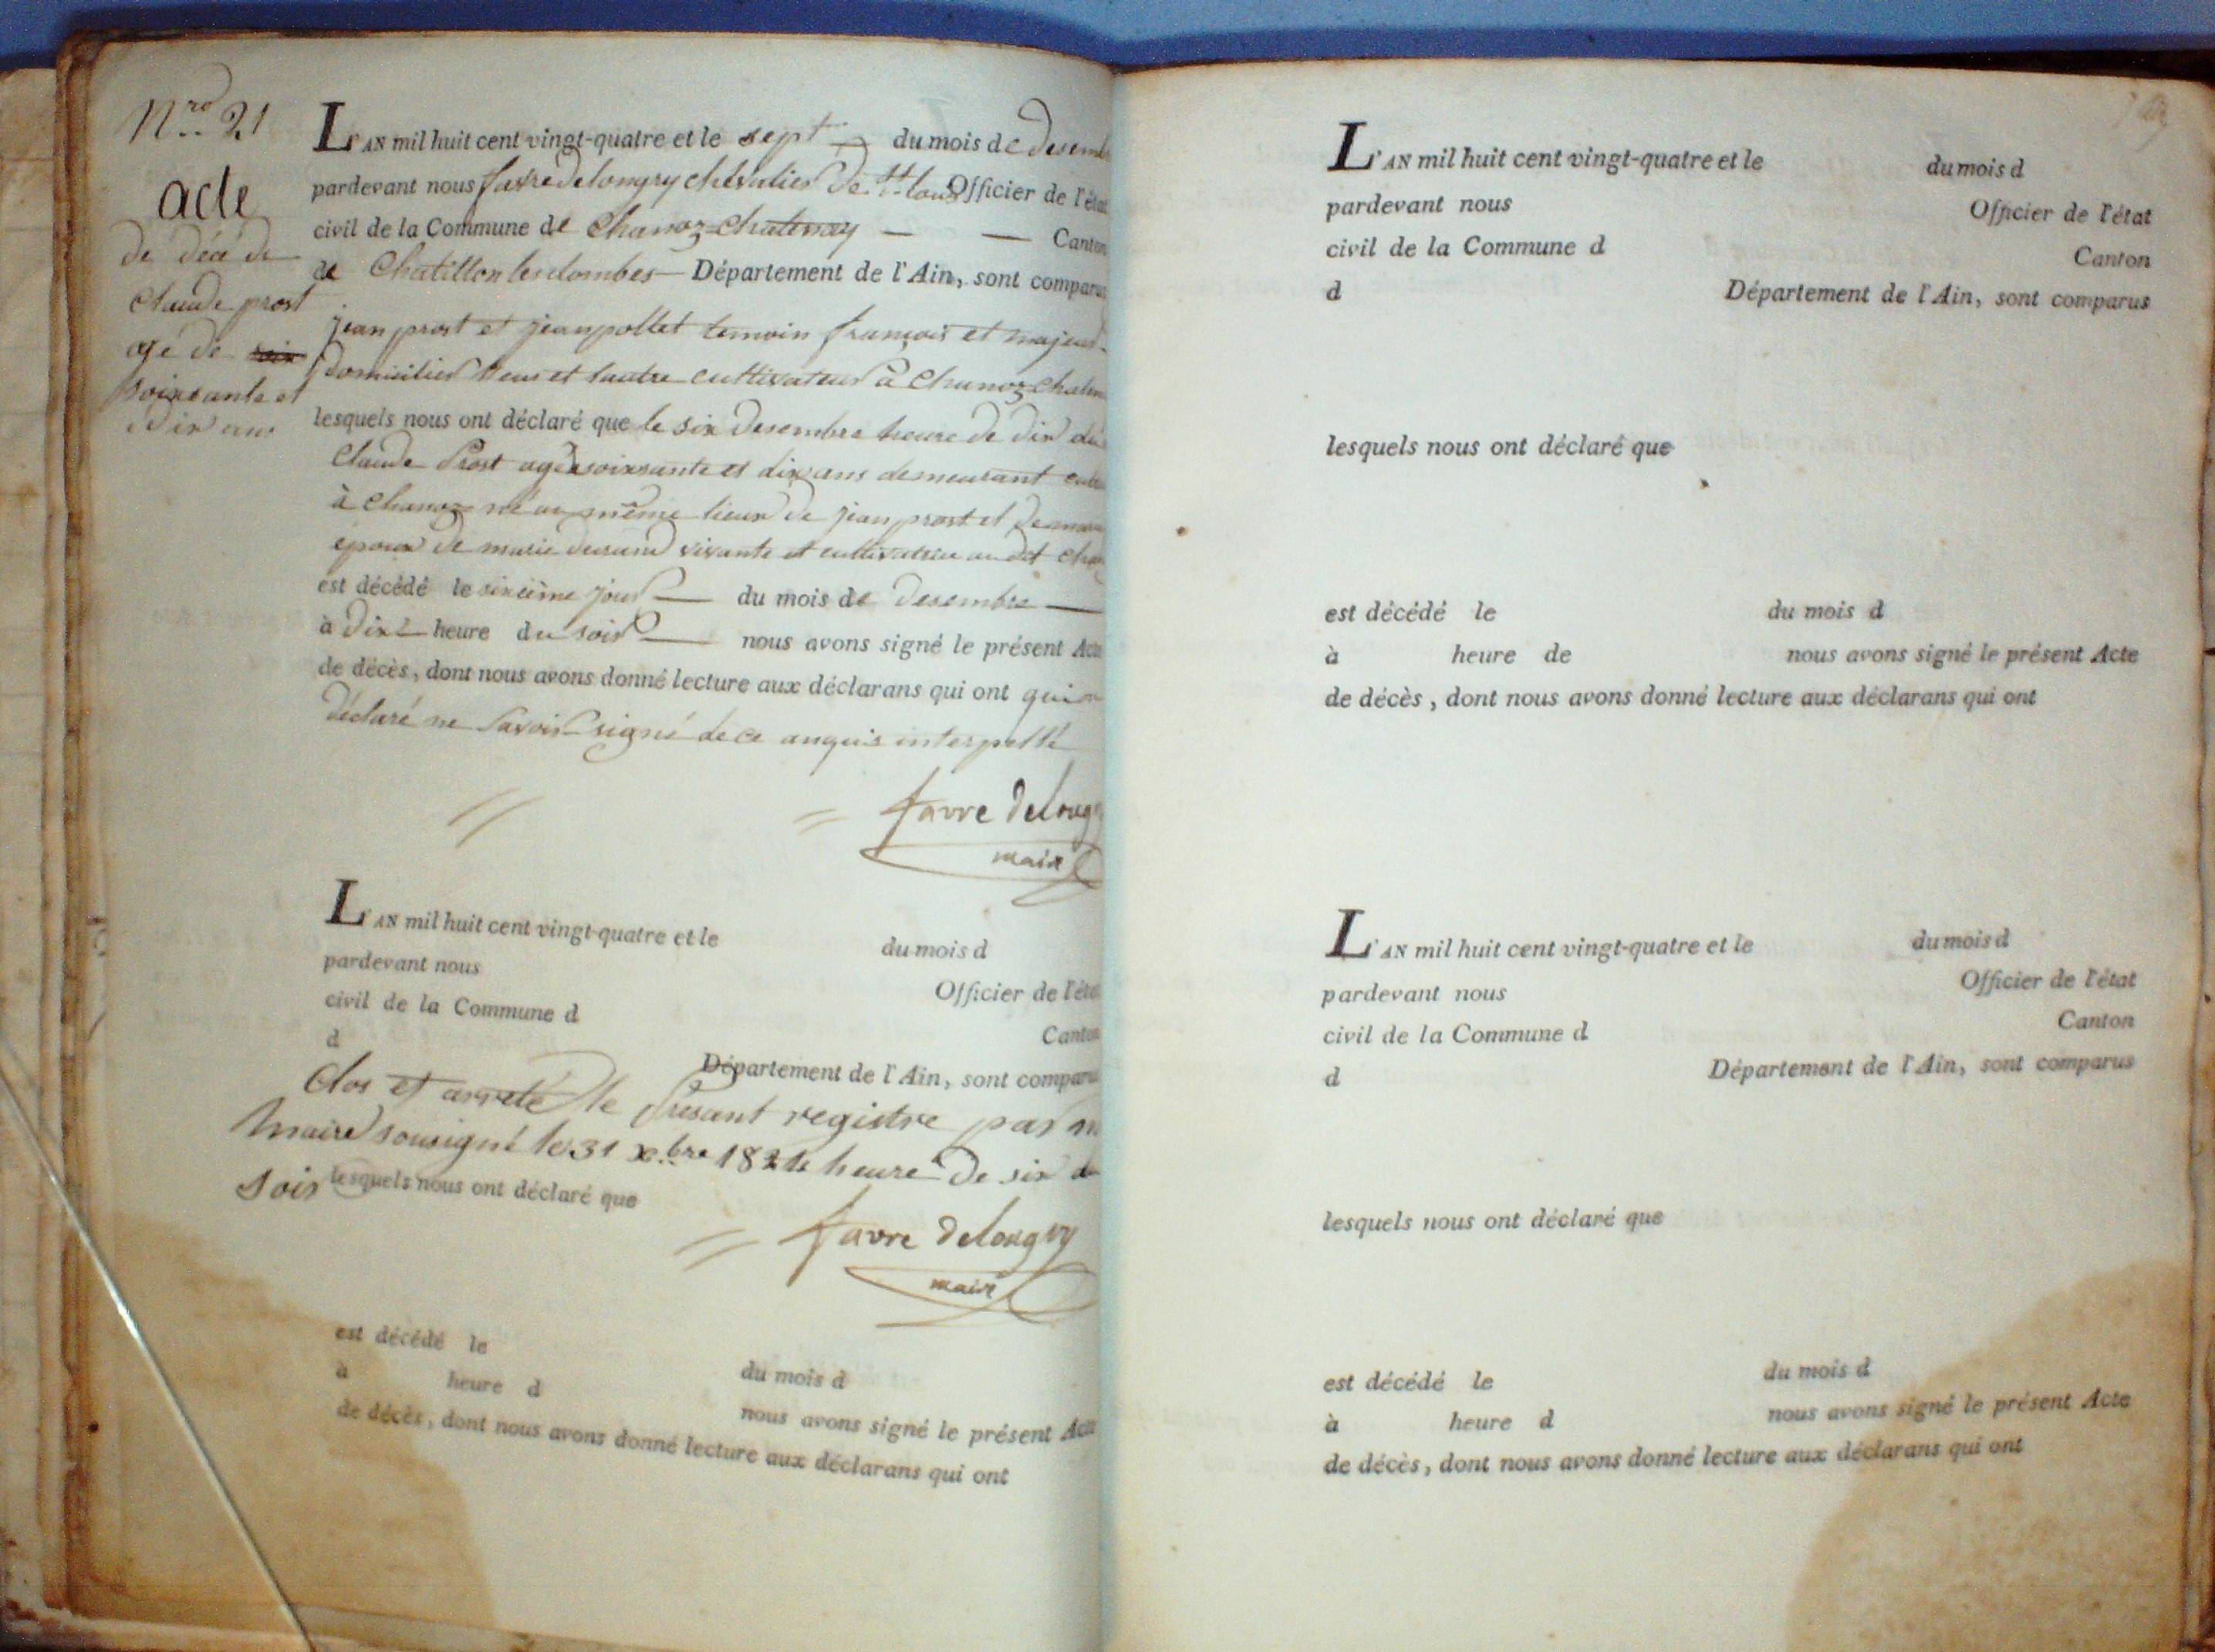 Nro 21
acte
de décé de
Claude prost
agé de six
soixsante et
dix ans
L'AN mil huit cent vingt-quatre et le sept du mois de desemb
pardevant nous favre delongry chevalier de st louis Officier de l'état
civil de la Commune de Chanoz-Chatenay — — Canton
de Chatillon les dombes — Département de l'Ain, sont comparus
jean prost et jean pollet temoin françois et majeur
domicilier l'eun et lautre cultivateur à Chanoz-Chaten
lesquels nous ont déclaré que le six desembre heure de dix du
Claude Prost agé soixsante et dix ans demeurant
à Chanoz né au même lieux de jean prost et de
epoux de marie durand vivante et cultivateur au dit Chan
est décédé le sixième jour — du mois de desembre —
à dix heure du soir — nous avons signé le présent Acte
de décès, dont nous avons donné lecture aux déclarans qui ont qui
déclaré ne savoir signé de ce anquis interpellé
favre delongry
maire
L'AN mil huit cent vingt-quatre et le du mois d
pardevant nous Officier de l'état
civil de la Commune d Canton
d Département de l'Ain, sont comparus
Clos et arreté le présant registre par
maire sousigné le 31 xbre 1824 heure de six du
soir lesquels nous ont déclaré que
favre delongry
maire
est décédé le du mois d
à heure d nous avons signé le présent Acte
de décès, dont nous avons donné lecture aux déclarans qui ont
L'AN mil huit cent vingt-quatre et le du mois d
pardevant nous Officier de l'état
civil de la Commune d Canton
d Département de l'Ain, sont comparus
lesquels nous ont déclaré que
est décédé le du mois d
à heure de nous avons signé le présent Acte
de décès, dont nous avons donné lecture aux déclarans qui ont
L'AN mil huit cent vingt-quatre et le du mois d
pardevant nous Officier de l'état
civil de la Commune d Canton
d Département de l'Ain, sont comparus
lesquels nous ont déclaré que
est décédé le du mois d
à heure d nous avons signé le présent Acte
de décès, dont nous avons donné lecture aux déclarans qui ont